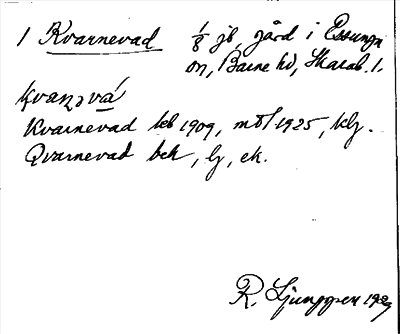 1 Kvarnevad 1/8 jb, gård i Essunga
sn, Barne hd, Skarab. l.
kvaṇəvá
Kvarnevad leb 1909, mtl 1925, klj.
Qvarnevad bek, lj, ek.
R. Ljunggren 1929